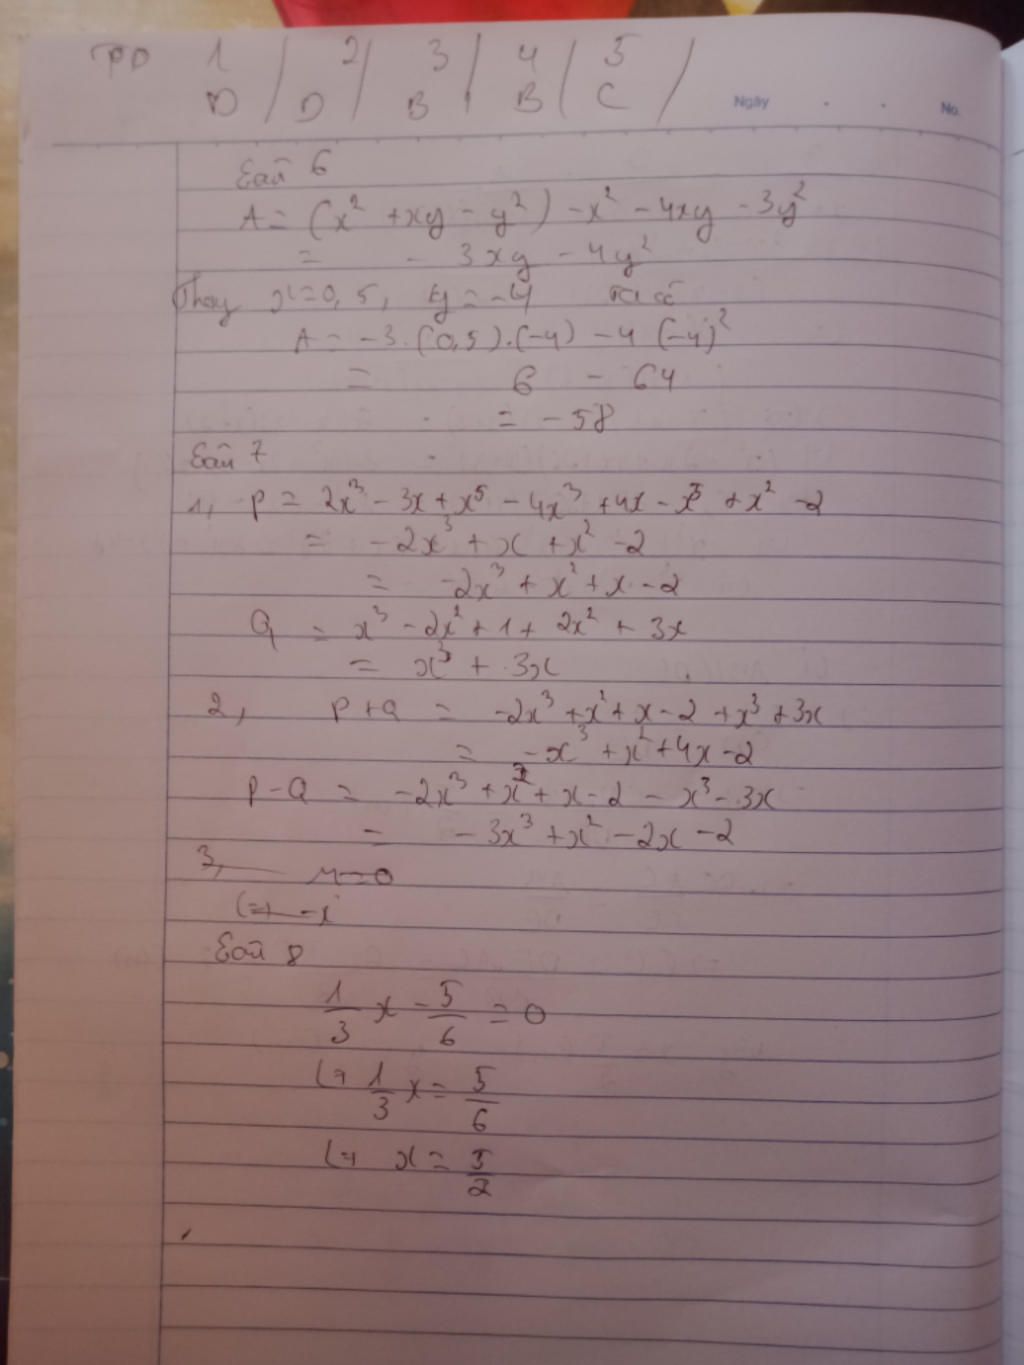 1 / 2 / 3 / 4 / 5 /
D / D / B / B / C /
Ngày . . No.
Bài 6
A = (x² + xy - y²) - x² - 4xy - 3y²
= - 3xy - 4y²
Thay x = 0,5, y = -4 ta có
A = -3.(0,5).(-4) - 4(-4)²
= 6 - 64
= -58
Bài 7
1, P = 2x³ - 3x + x⁵ - 4x³ + 4x - x⁵ + x² - 2
= -2x³ + x + x² - 2
= -2x³ + x² + x - 2
Q = x³ - 2x² + 1 + 2x² + 3x
= x³ + 3x
2, P+Q = -2x³ + x² + x - 2 + x³ + 3x
= -x³ + x² + 4x - 2
P-Q = -2x³ + x² + x - 2 - x³ - 3x
= -3x³ + x² - 2x - 2
3,
Bài 8
1/3 x - 5/6 = 0
↳ 1/3 x = 5/6
↳ x = 5/2